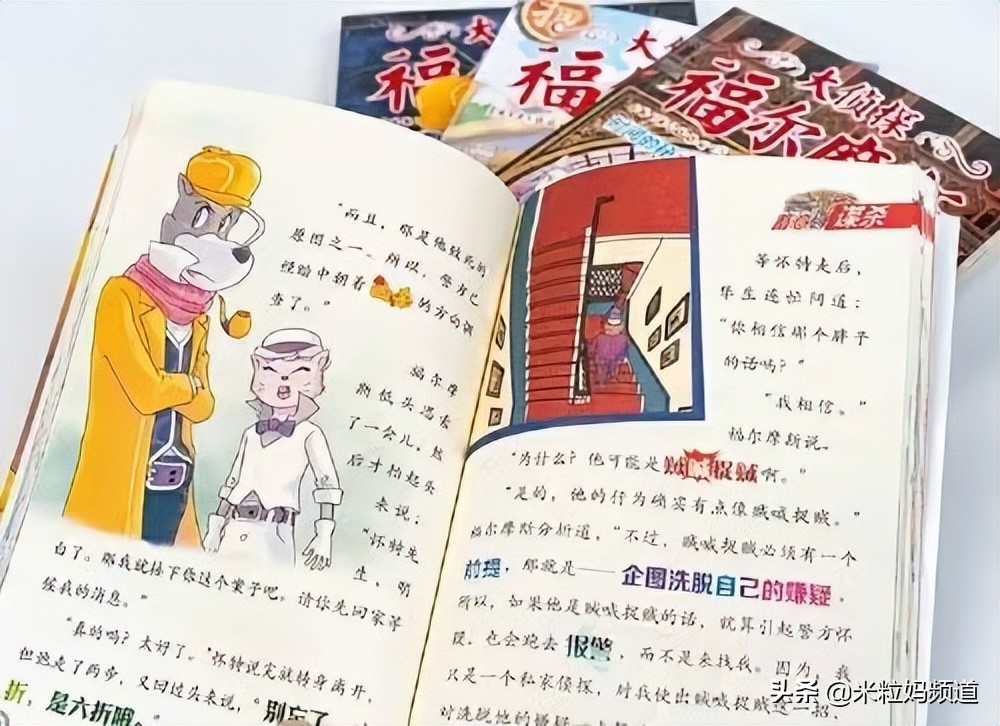 大
福
把
大侦
福
大侦探
福尔摩
谋杀
"而且，你是他致死的
原因之一。所以，警方已
经暗中朝着
的方向调
查了。"
福尔摩
斯低头思索
了一会儿，然
后才抬起头
来说：
"怀特先
生，明
白了。那我就接下你这个案子吧。请你先回家等
候我的消息。"
"真的吗？太好了。"怀特说完就转身离开，
但这走了两步，又回过头来说，"别忘了
折，是六折哦。
等怀特走后，
华生连忙问道：
"你相信那个胖子
的话吗？"
"我相信。"
福尔摩斯说。
"为什么？他可能是贼喊捉贼啊。"
"是的，他的行为确实有点像贼喊捉贼。"
福尔摩斯分析道，"不过，贼喊捉贼必须有一个
前提，那就是——企图洗脱自己的嫌疑。
所以，如果他是贼喊捉贼的话，就算引起警方怀
疑，也会跑去报警，而不是来找我。因为，我
只是一个私家侦探，对我使出贼喊捉贼这一招，
对洗脱他的嫌疑一点
头条 @米粒妈频道